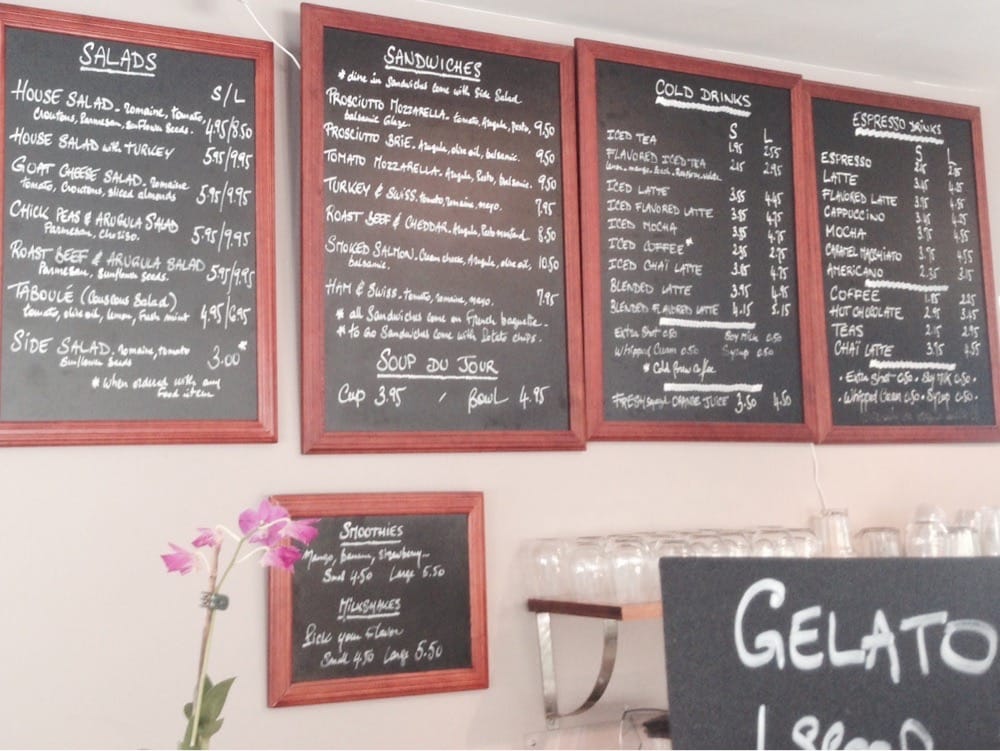 SALADS
S/L
HOUSE SALAD - romaine, tomato,
croutons, Parmesan, Sunflower Seeds. 4.95/8.50
HOUSE SALAD with TURKEY 5.95/9.95
GOAT CHEESE SALAD - romaine
tomato, Croutons, sliced almonds 5.95/9.95
CHICK PEAS & ARUGULA SALAD
Parmesan, Chorizo. 5.95/9.95
ROAST BEEF & ARUGULA SALAD
Parmesan, Sunflower seeds. 5.95/9.95
TABOULÉ (Couscous Salad)
tomato, olive oil, lemon, Fresh mint 4.95/6.95
SIDE SALAD - romaine, tomato
Sunflower seeds 3.00*
* When ordered with any
Food item
SANDWICHES
* dine in Sandwiches come with Side Salad
PROSCIUTTO MOZZARELLA - tomato, Arugula, Pesto,
balsamic Glaze 9.50
PROSCIUTTO BRIE - Arugula, olive oil, balsamic. 9.50
TOMATO MOZZARELLA - Arugula, Pesto, balsamic. 9.50
TURKEY & SWISS - tomato, romaine, mayo. 7.95
ROAST BEEF & CHEDDAR - Arugula, Pesto mustard 8.50
SMOKED SALMON - Cream cheese, Arugula, olive oil,
balsamic. 10.50
HAM & SWISS - tomato, romaine, mayo. 7.95
* all Sandwiches come on French baguette -
* to Go Sandwiches come with Potato chips.
SOUP DU JOUR
Cup 3.95 / BOWL 4.95
COLD DRINKS
S L
ICED TEA 1.95 2.55
FLAVORED ICED TEA 2.95
ICED LATTE 4.45
ICED FLAVORED LATTE 4.95
ICED MOCHA 4.75
ICED COFFEE* 2.75
ICED CHAÏ LATTE 4.75
BLENDED LATTE 3.95 4.95
BLENDED FLAVORED LATTE 4.15 5.15
Extra Shot 0.50 Soy Milk 0.50
Whipped Cream 0.50 Syrup 0.50
* Cold Brew Coffee
FRESH Squeezed ORANGE JUICE 3.50 4.50
ESPRESSO DRINKS
S L
ESPRESSO
LATTE
FLAVORED LATTE
CAPPUCCINO
MOCHA
CARAMEL MACCHIATO 3.75 4.55
AMERICANO 2.35
COFFEE 1.85 2.25
HOT CHOCOLATE 2.95 3.45
TEAS 2.95
CHAÏ LATTE 3.75 4.55
• Extra Shot 0.50 • Soy Milk 0.50 •
• Whipped Cream 0.50 • Syrup 0.50
SMOOTHIES
Mango, banana, strawberry...
Small 4.50 Large 5.50
MILKSHAKES
Pick your Flavor
Small 4.50 Large 5.50
GELATO